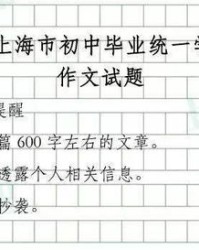 上海市初中毕业统一学
作文试题
提醒
篇 600 字左右的文章。
透露个人相关信息。
抄袭。